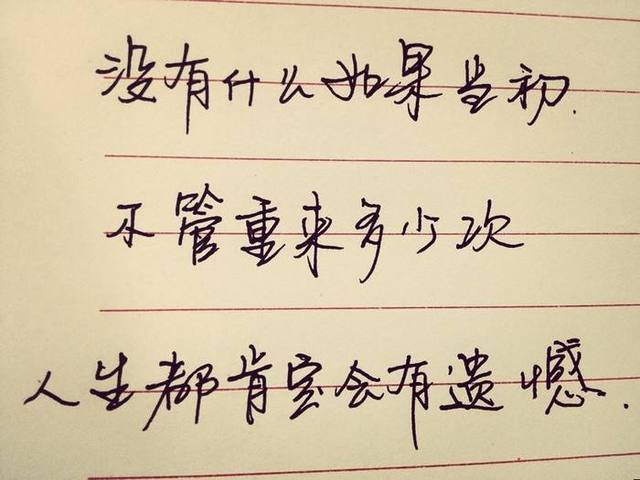 没有什么如果当初.
不管重来多少次
人生都肯定会有遗憾.